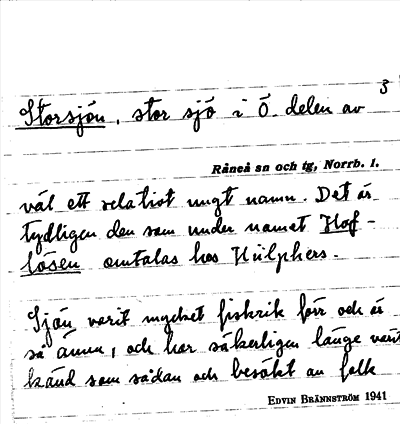 3
Storsjön, stor sjö i Ö. delen av
Råneå sn och tg, Norrb. l.
väl ett relativt ungt namn. Det är
tydligen den som under namnet Hof-
lösen omtalas hos Hülphers.
Sjön varit mycket fiskrik förr och är
så ännu, och har säkerligen länge varit
känd som sådan och besökt av folk
EDVIN BRÄNNSTRÖM 1941